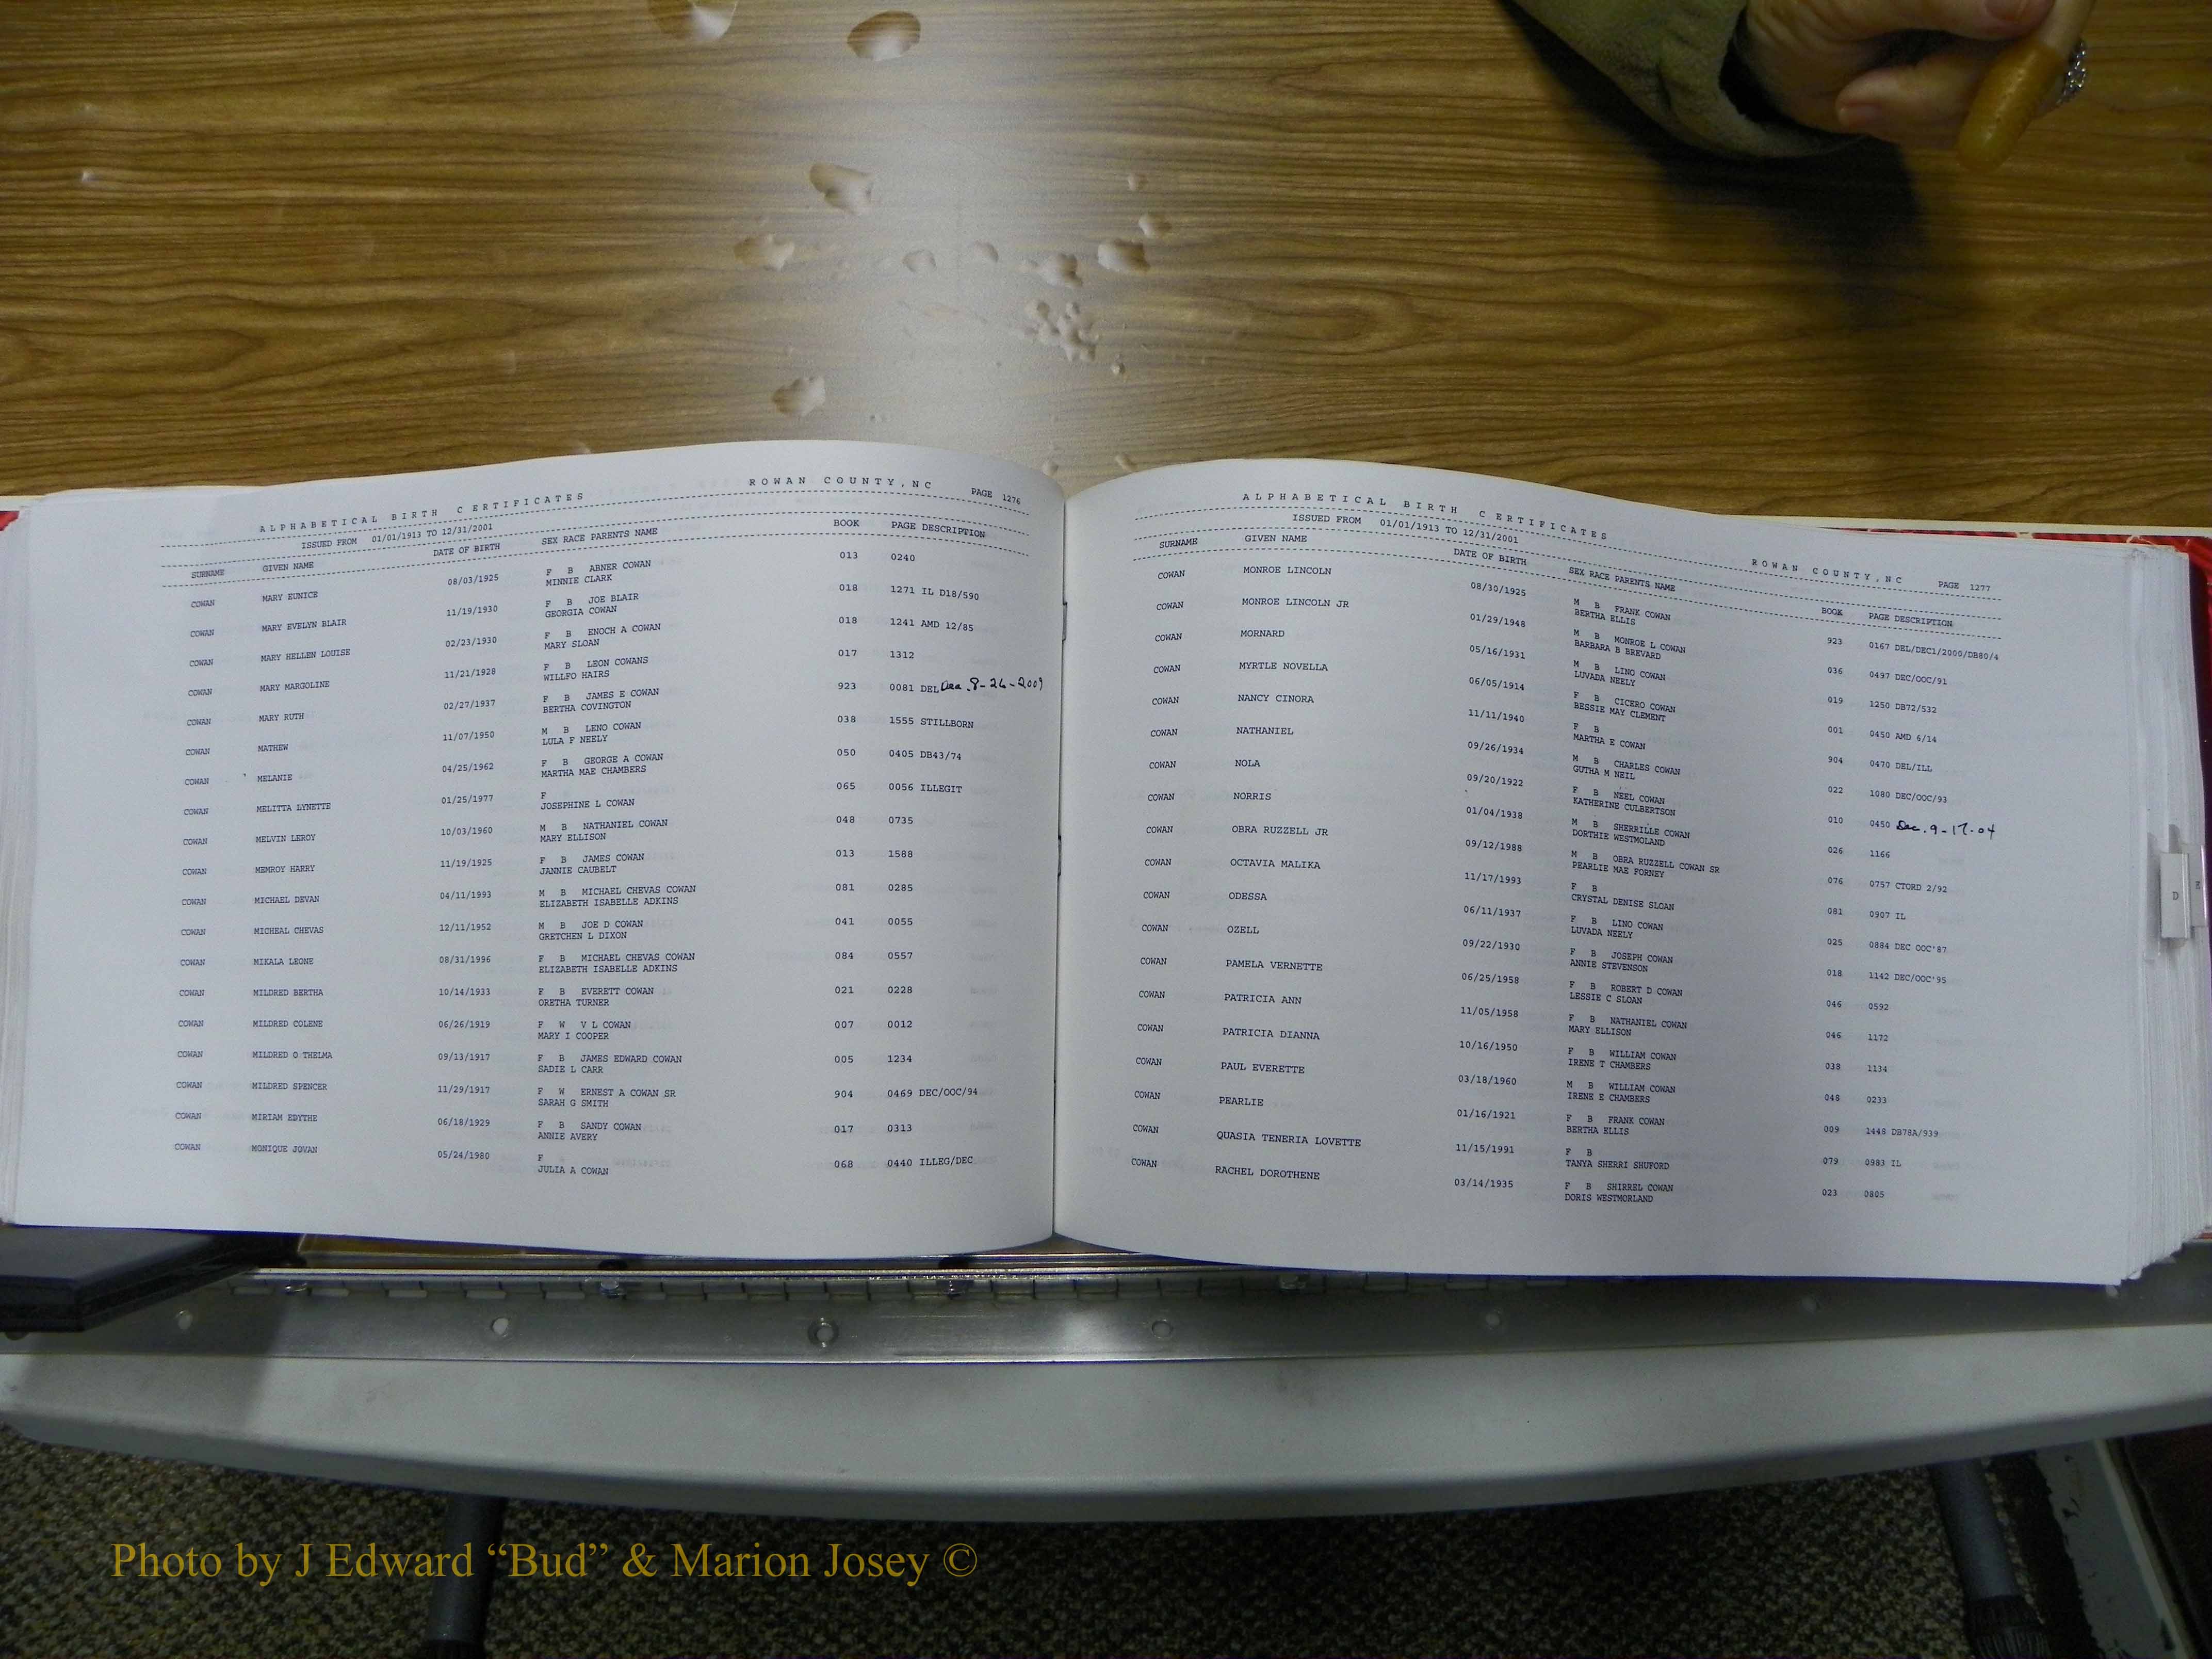 ALPHABETICAL BIRTH CERTIFICATES ROWAN COUNTY,NC PAGE 1276
ISSUED FROM 01/01/1913 TO 12/31/2001
SURNAME GIVEN NAME DATE OF BIRTH SEX RACE PARENTS NAME BOOK PAGE DESCRIPTION
COWAN MARY EUNICE 08/03/1925 F B ABNER COWAN 013 0240
MINNIE CLARK
COWAN MARY EVELYN BLAIR 11/19/1930 F B JOE BLAIR 018 1271 IL D18/590
GEORGIA COWAN
COWAN MARY HELLEN LOUISE 02/23/1930 F B ENOCH A COWAN 018 1241 AMD 12/85
MARY SLOAN
COWAN MARY MARGOLINE 11/21/1928 F B LEON COWANS 017 1312
WILLFO HAIRS
COWAN MARY RUTH 02/27/1937 F B JAMES E COWAN 923 0081 DEL Dec. 8-26-2009
BERTHA COVINGTON
COWAN MATHEW 11/07/1950 M B LENO COWAN 038 1555 STILLBORN
LULA F NEELY
COWAN MELANIE 04/25/1962 F B GEORGE A COWAN 050 0405 DB43/74
MARTHA MAE CHAMBERS
COWAN MELITTA LYNETTE 01/25/1977 F 065 0056 ILLEGIT
JOSEPHINE L COWAN
COWAN MELVIN LEROY 10/03/1960 M B NATHANIEL COWAN 048 0735
MARY ELLISON
COWAN MEMROY HARRY 11/19/1925 F B JAMES COWAN 013 1588
JANNIE CAUBELT
COWAN MICHAEL DEVAN 04/11/1993 M B MICHAEL CHEVAS COWAN 081 0285
ELIZABETH ISABELLE ADKINS
COWAN MICHEAL CHEVAS 12/11/1952 M B JOE D COWAN 041 0055
GRETCHEN L DIXON
COWAN MIKALA LEONE 08/31/1996 F B MICHAEL CHEVAS COWAN 084 0557
ELIZABETH ISABELLE ADKINS
COWAN MILDRED BERTHA 10/14/1933 F B EVERETT COWAN 021 0228
ORETHA TURNER
COWAN MILDRED COLENE 06/26/1919 F W V L COWAN 007 0012
MARY I COOPER
COWAN MILDRED O THELMA 09/13/1917 F B JAMES EDWARD COWAN 005 1234
SADIE L CARR
COWAN MILDRED SPENCER 11/29/1917 F W ERNEST A COWAN SR 904 0469 DEC/OOC/94
SARAH G SMITH
COWAN MIRIAM EDYTHE 06/18/1929 F B SANDY COWAN 017 0313
ANNIE AVERY
COWAN MONIQUE JOVAN 05/24/1980 F 068 0440 ILLEG/DEC
JULIA A COWAN
ALPHABETICAL BIRTH CERTIFICATES ROWAN COUNTY,NC PAGE 1277
ISSUED FROM 01/01/1913 TO 12/31/2001
SURNAME GIVEN NAME DATE OF BIRTH SEX RACE PARENTS NAME BOOK PAGE DESCRIPTION
COWAN MONROE LINCOLN 08/30/1925 M B FRANK COWAN 923 0167 DEL/DEC1/2000/DB80/4
BERTHA ELLIS
COWAN MONROE LINCOLN JR 01/29/1948 M B MONROE L COWAN 036 0497 DEC/OOC/91
BARBARA B BREVARD
COWAN MORNARD 05/16/1931 M B LINO COWAN 019 1250 DB72/532
LUVADA NEELY
COWAN MYRTLE NOVELLA 06/05/1914 F B CICERO COWAN 001 0450 AMD 6/14
BESSIE MAY CLEMENT
COWAN NANCY CINORA 11/11/1940 F B 904 0470 DEL/ILL
MARTHA E COWAN
COWAN NATHANIEL 09/26/1934 M B CHARLES COWAN 022 1080 DEC/OOC/93
GUTHA M NEIL
COWAN NOLA 09/20/1922 F B NEEL COWAN 010 0450 Dec. 9-17-04
KATHERINE CULBERTSON
COWAN NORRIS 01/04/1938 M B SHERRILLE COWAN 026 1166
DORTHIE WESTMOLAND
COWAN OBRA RUZZELL JR 09/12/1988 M B OBRA RUZZELL COWAN SR 076 0757 CTORD 2/92
PEARLIE MAE FORNEY
COWAN OCTAVIA MALIKA 11/17/1993 F B 081 0907 IL
CRYSTAL DENISE SLOAN
COWAN ODESSA 06/11/1937 F B LINO COWAN 025 0884 DEC OOC'87
LUVADA NEELY
COWAN OZELL 09/22/1930 F B JOSEPH COWAN 018 1142 DEC/OOC'95
ANNIE STEVENSON
COWAN PAMELA VERNETTE 06/25/1958 F B ROBERT D COWAN 046 0592
LESSIE C SLOAN
COWAN PATRICIA ANN 11/05/1958 F B NATHANIEL COWAN 046 1172
MARY ELLISON
COWAN PATRICIA DIANNA 10/16/1950 F B WILLIAM COWAN 038 1134
IRENE T CHAMBERS
COWAN PAUL EVERETTE 03/18/1960 M B WILLIAM COWAN 048 0233
IRENE E CHAMBERS
COWAN PEARLIE 01/16/1921 F B FRANK COWAN 009 1448 DB78A/939
BERTHA ELLIS
COWAN QUASIA TENERIA LOVETTE 11/15/1991 F B 079 0983 IL
TANYA SHERRI SHUFORD
COWAN RACHEL DOROTHENE 03/14/1935 F B SHIRREL COWAN 023 0805
DORIS WESTMORLAND
D
Photo by J Edward “Bud” & Marion Josey ©